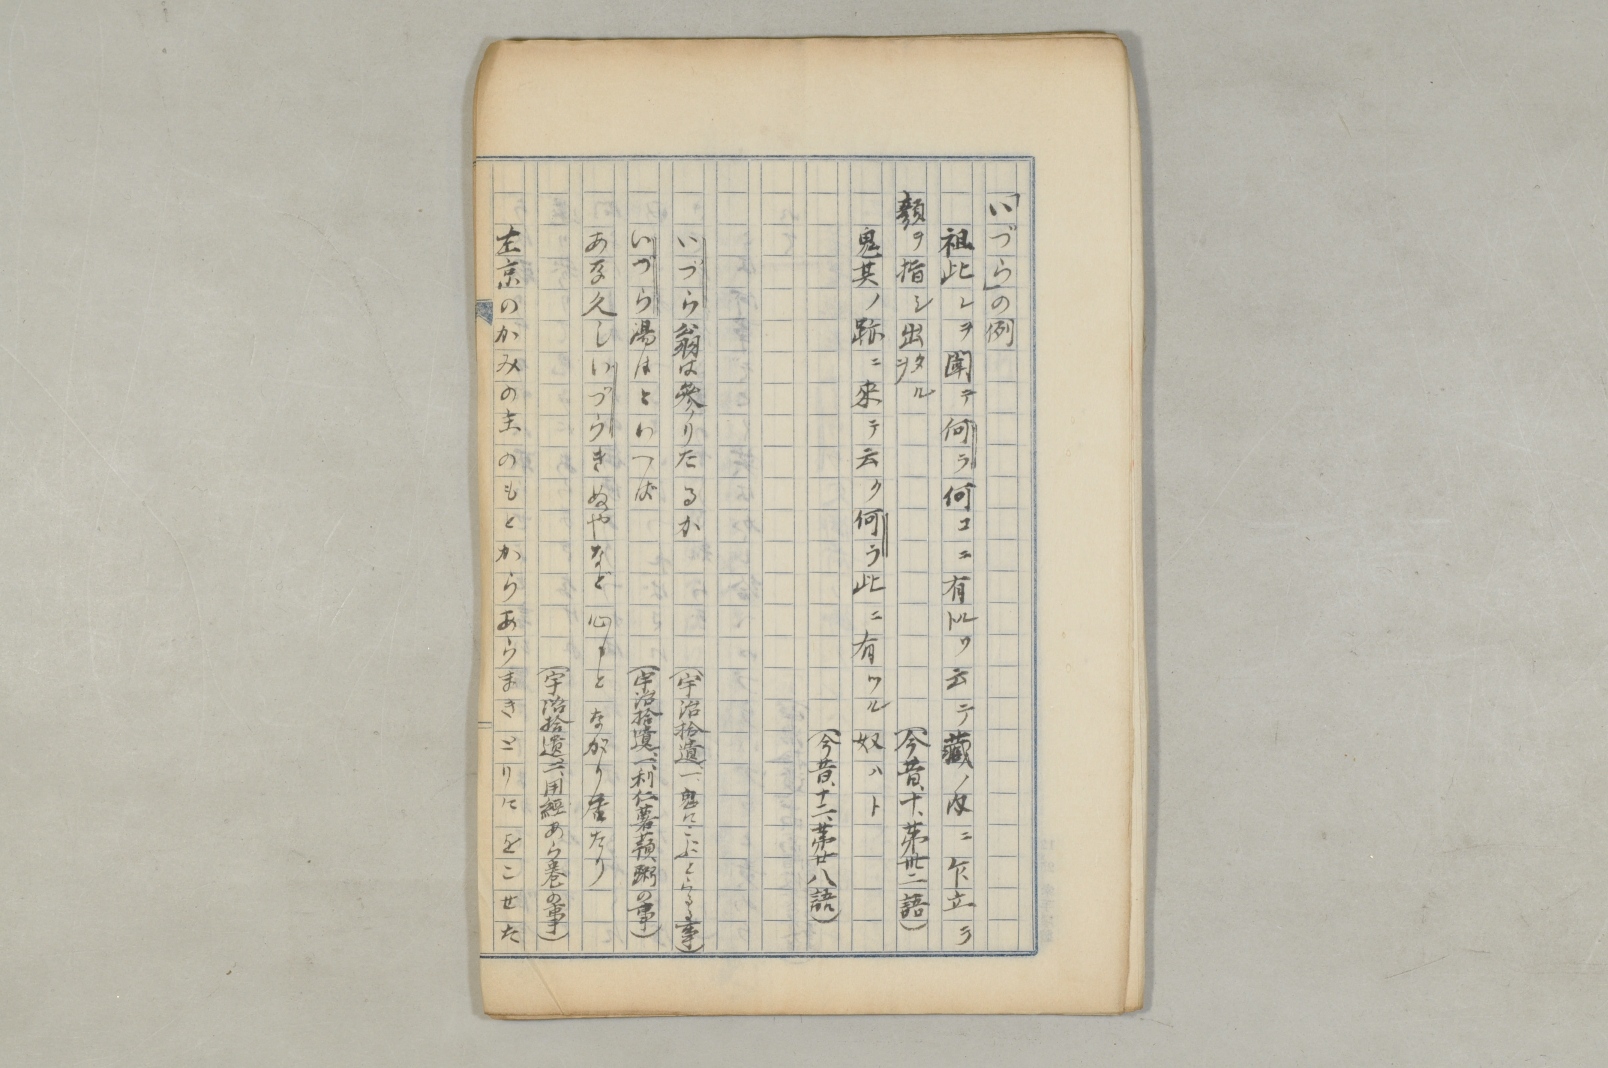 「いづら」の例
祖此レヲ聞テ何ラ何コニ有ルヲ云テ藏ノ内ニ乍立ラ
顔ヲ指シ出シタル
(今昔、十、第卅二語)
鬼其ノ跡ニ來テ云ク何ラ此ニ有ツル奴ハト
(今昔、十二、第廿八語)
いづら翁は參りたるか
(宇治拾遺、一、鬼にこぶとらるる事)
いづら湯はとわつば
(宇治拾遺、一、利仁薯蕷粥の事)
あな久しいづらきぬやなど心もとながり居たり
(宇治拾遺、二、用經あら巻の事)
左京のかみの主のもとからあらまきどりにをこせた